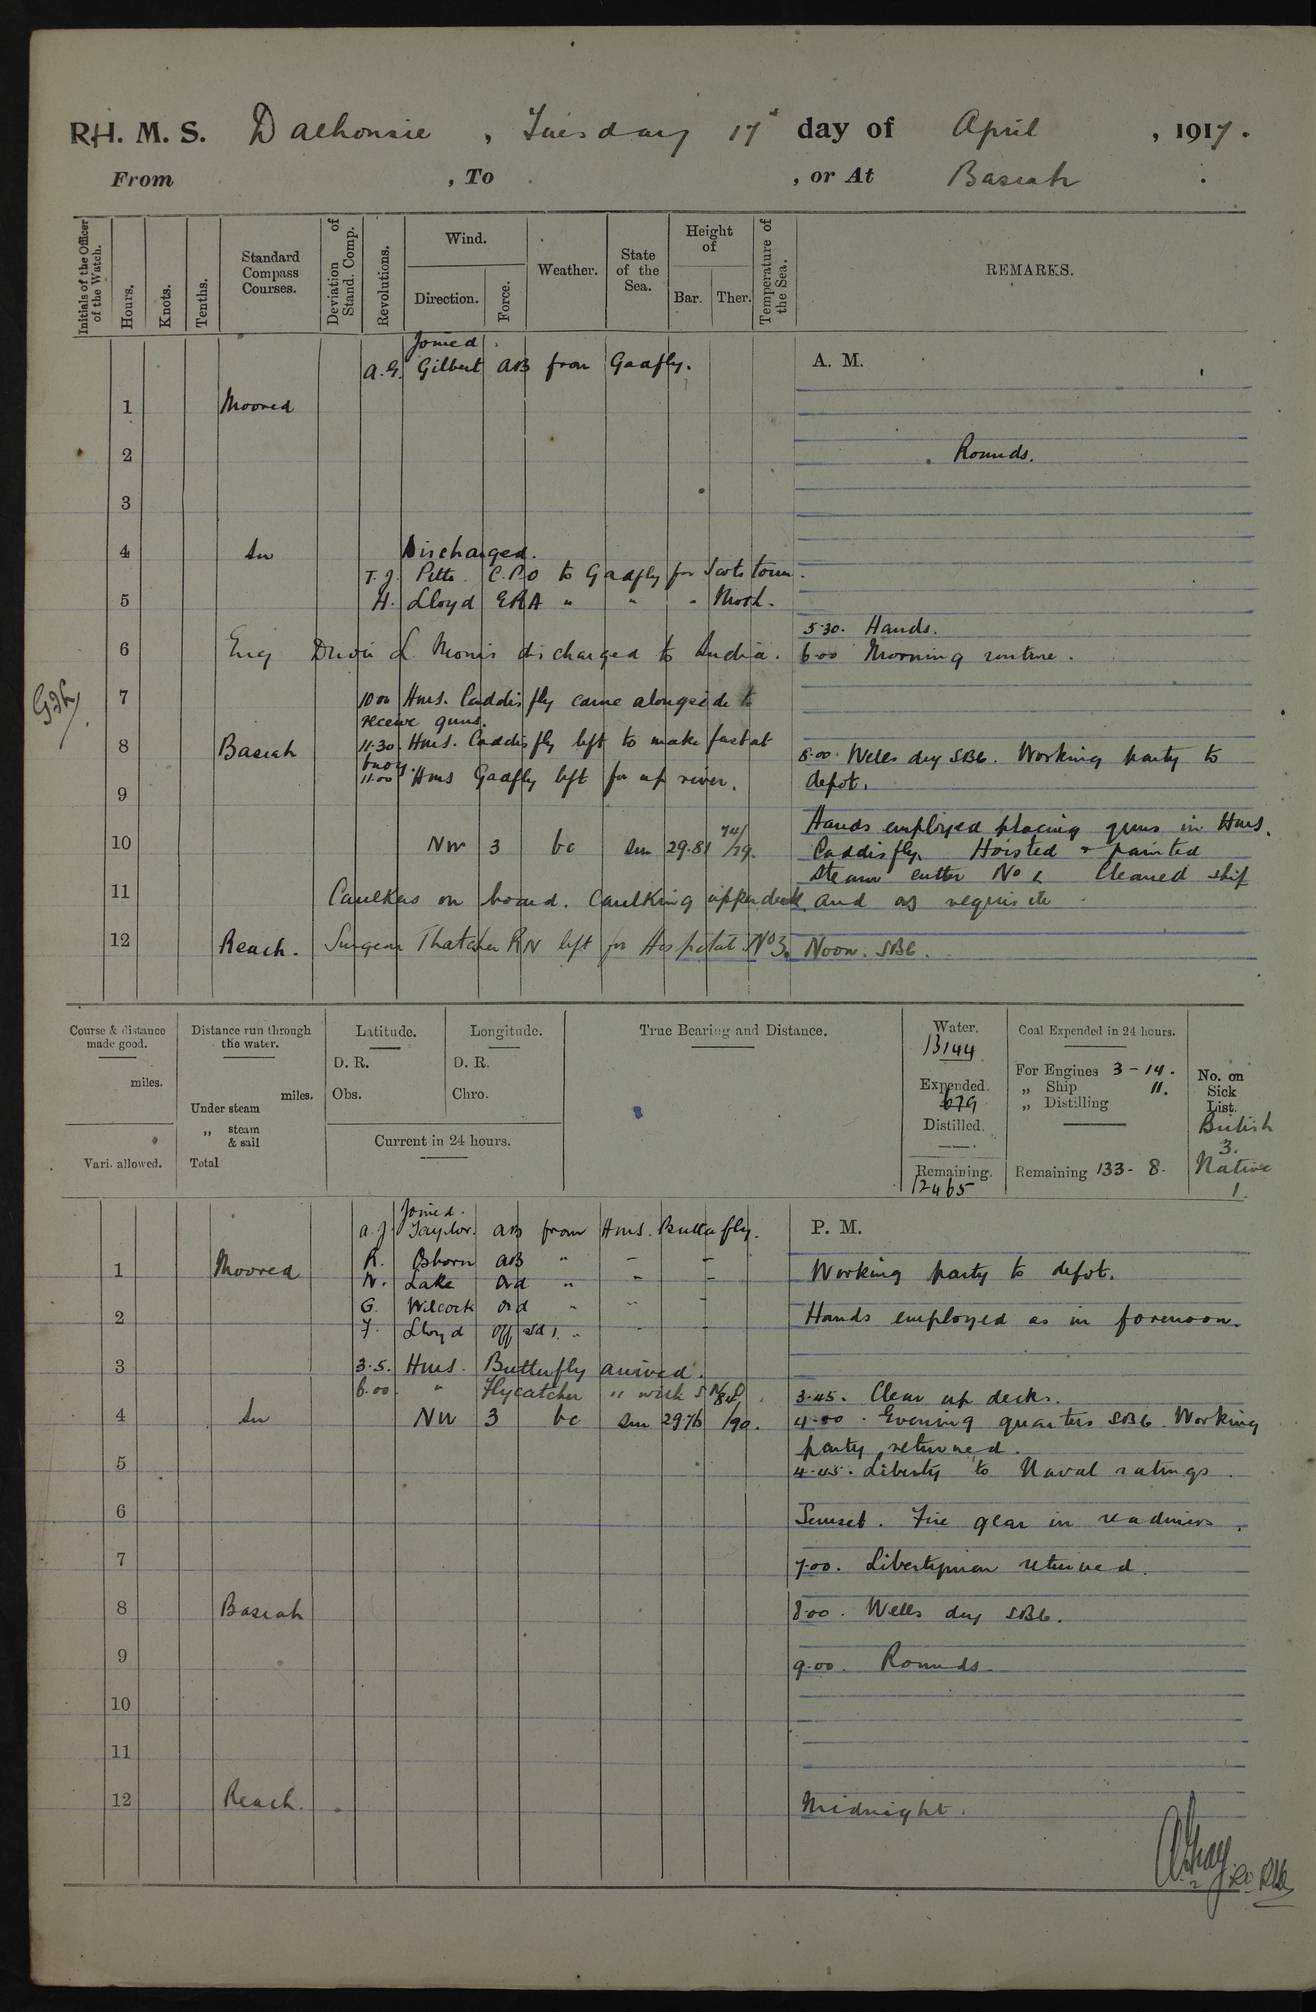 RH. M. S. Dalhousie , Tuesday 17 day of April , 1917.
From , To , or At Basrah
Initials of the Officer of the Watch.
Hours.
Knots.
Tenths.
Standard Compass Courses.
Deviation of Stand. Comp.
Revolutions.
Wind.
Direction.
Force.
Weather.
State of the Sea.
Height of
Bar.
Ther.
Temperature of the Sea.
REMARKS.
Joined.
A.G. Gilbert AB from Gadfly.
A. M.
1 Moored
2 Rounds.
3
4 in Discharged.
T. J. Pitts. C.P.O to Gadfly for
5 H. Lloyd ERA " " " Moth.
5.30. Hands.
6 Eng Driver L. Monis discharged to India. 6.00 Morning routine.
7 10.00 Hms. Caddisfly came alongside to
receive guns.
8 Basrah 11.30. Hms. Caddisfly left to make fast at
buoy.
8.00. Wells dry SBC. Working party to
11.00 Hms Gadfly left for up river.
depot.
9
Hands employed placing guns in Hms.
10 NW 3 bc sm 29.81 74/79. Caddisfly. Hoisted & painted
steam cutter No 2 Cleaned ship
11 Caulkers on board. Caulking upper deck. and as requisite
12 Reach. Surgeon Thatcher RN left for Hospital No 3. Noon. SBC.
Course & distance made good.
miles.
Vari. allowed.
Distance run through the water.
miles.
Under steam
„ steam & sail
Total
Latitude.
D. R.
Obs.
Longitude.
D. R.
Chro.
Current in 24 hours.
True Bearing and Distance.
Water.
13144
Expended.
679
Distilled.
Remaining.
12465
Coal Expended in 24 hours.
For Engines 3 - 14.
„ Ship 11.
„ Distilling
Remaining 133 - 8.
No. on Sick List.
British
3.
Native
1.
Joined.
A. J. Taylor. AB from Hms. Butterfly.
P. M.
R. Osborn AB " - -
1 Moored Working party to depot.
N. Lake Ord " " -
G. Wilcock Ord " " -
2 Hands employed as in forenoon.
F. Lloyd Off Std 1. " - -
3 3.5. Hms. Butterfly arrived.
6.00. " Flycatcher " with
3.45. Clear up decks.
4 in NW 3 bc sm 29.76 84/90. 4.00. Evening quarters SBC. Working
party returned.
5 4.45. Liberty to Naval ratings.
6 Sunset. Fire gear in readiness.
7 7.00. Libertymen returned.
8 Basrah 8.00. Wells dry SBC.
9 9.00. Rounds.
10
11
12 Reach. Midnight.